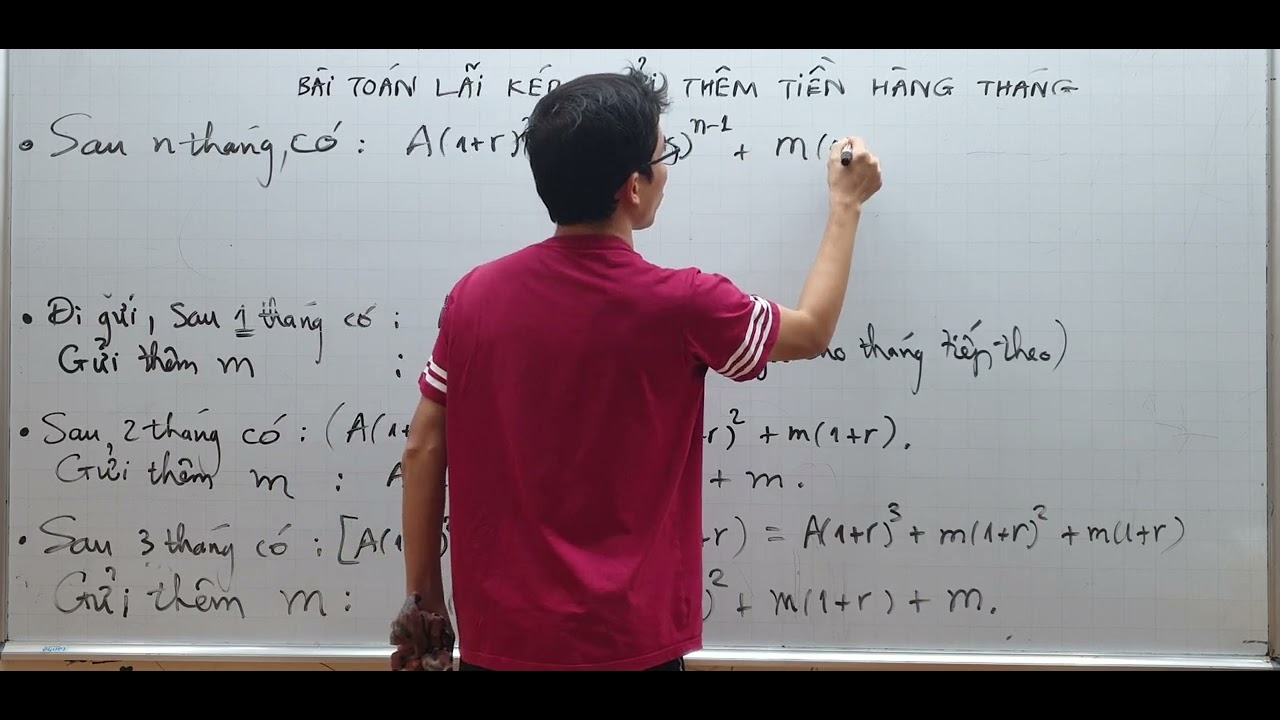 BÀI TOÁN LÃI KÉP THÊM TIỀN HÀNG THÁNG
• Sau n tháng, có : A(1+r) )ⁿ⁻¹ + m(
• Đi gửi, sau 1 tháng có :
Gửi thêm m : tháng tiếp theo)
• Sau 2 tháng có : (A(1+ r)² + m(1+r).
Gửi thêm m : A + m.
• Sau 3 tháng có : [A(1 +r) = A(1+r)³ + m(1+r)² + m(1+r)
Gửi thêm m : )² + m(1+r) + m.